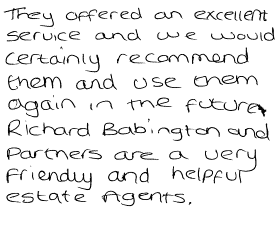 They offered an excellent
service and we would
certainly recommend
them and use them
again in the future.
Richard Babington and
Partners are a very
friendly and helpful
estate Agents.